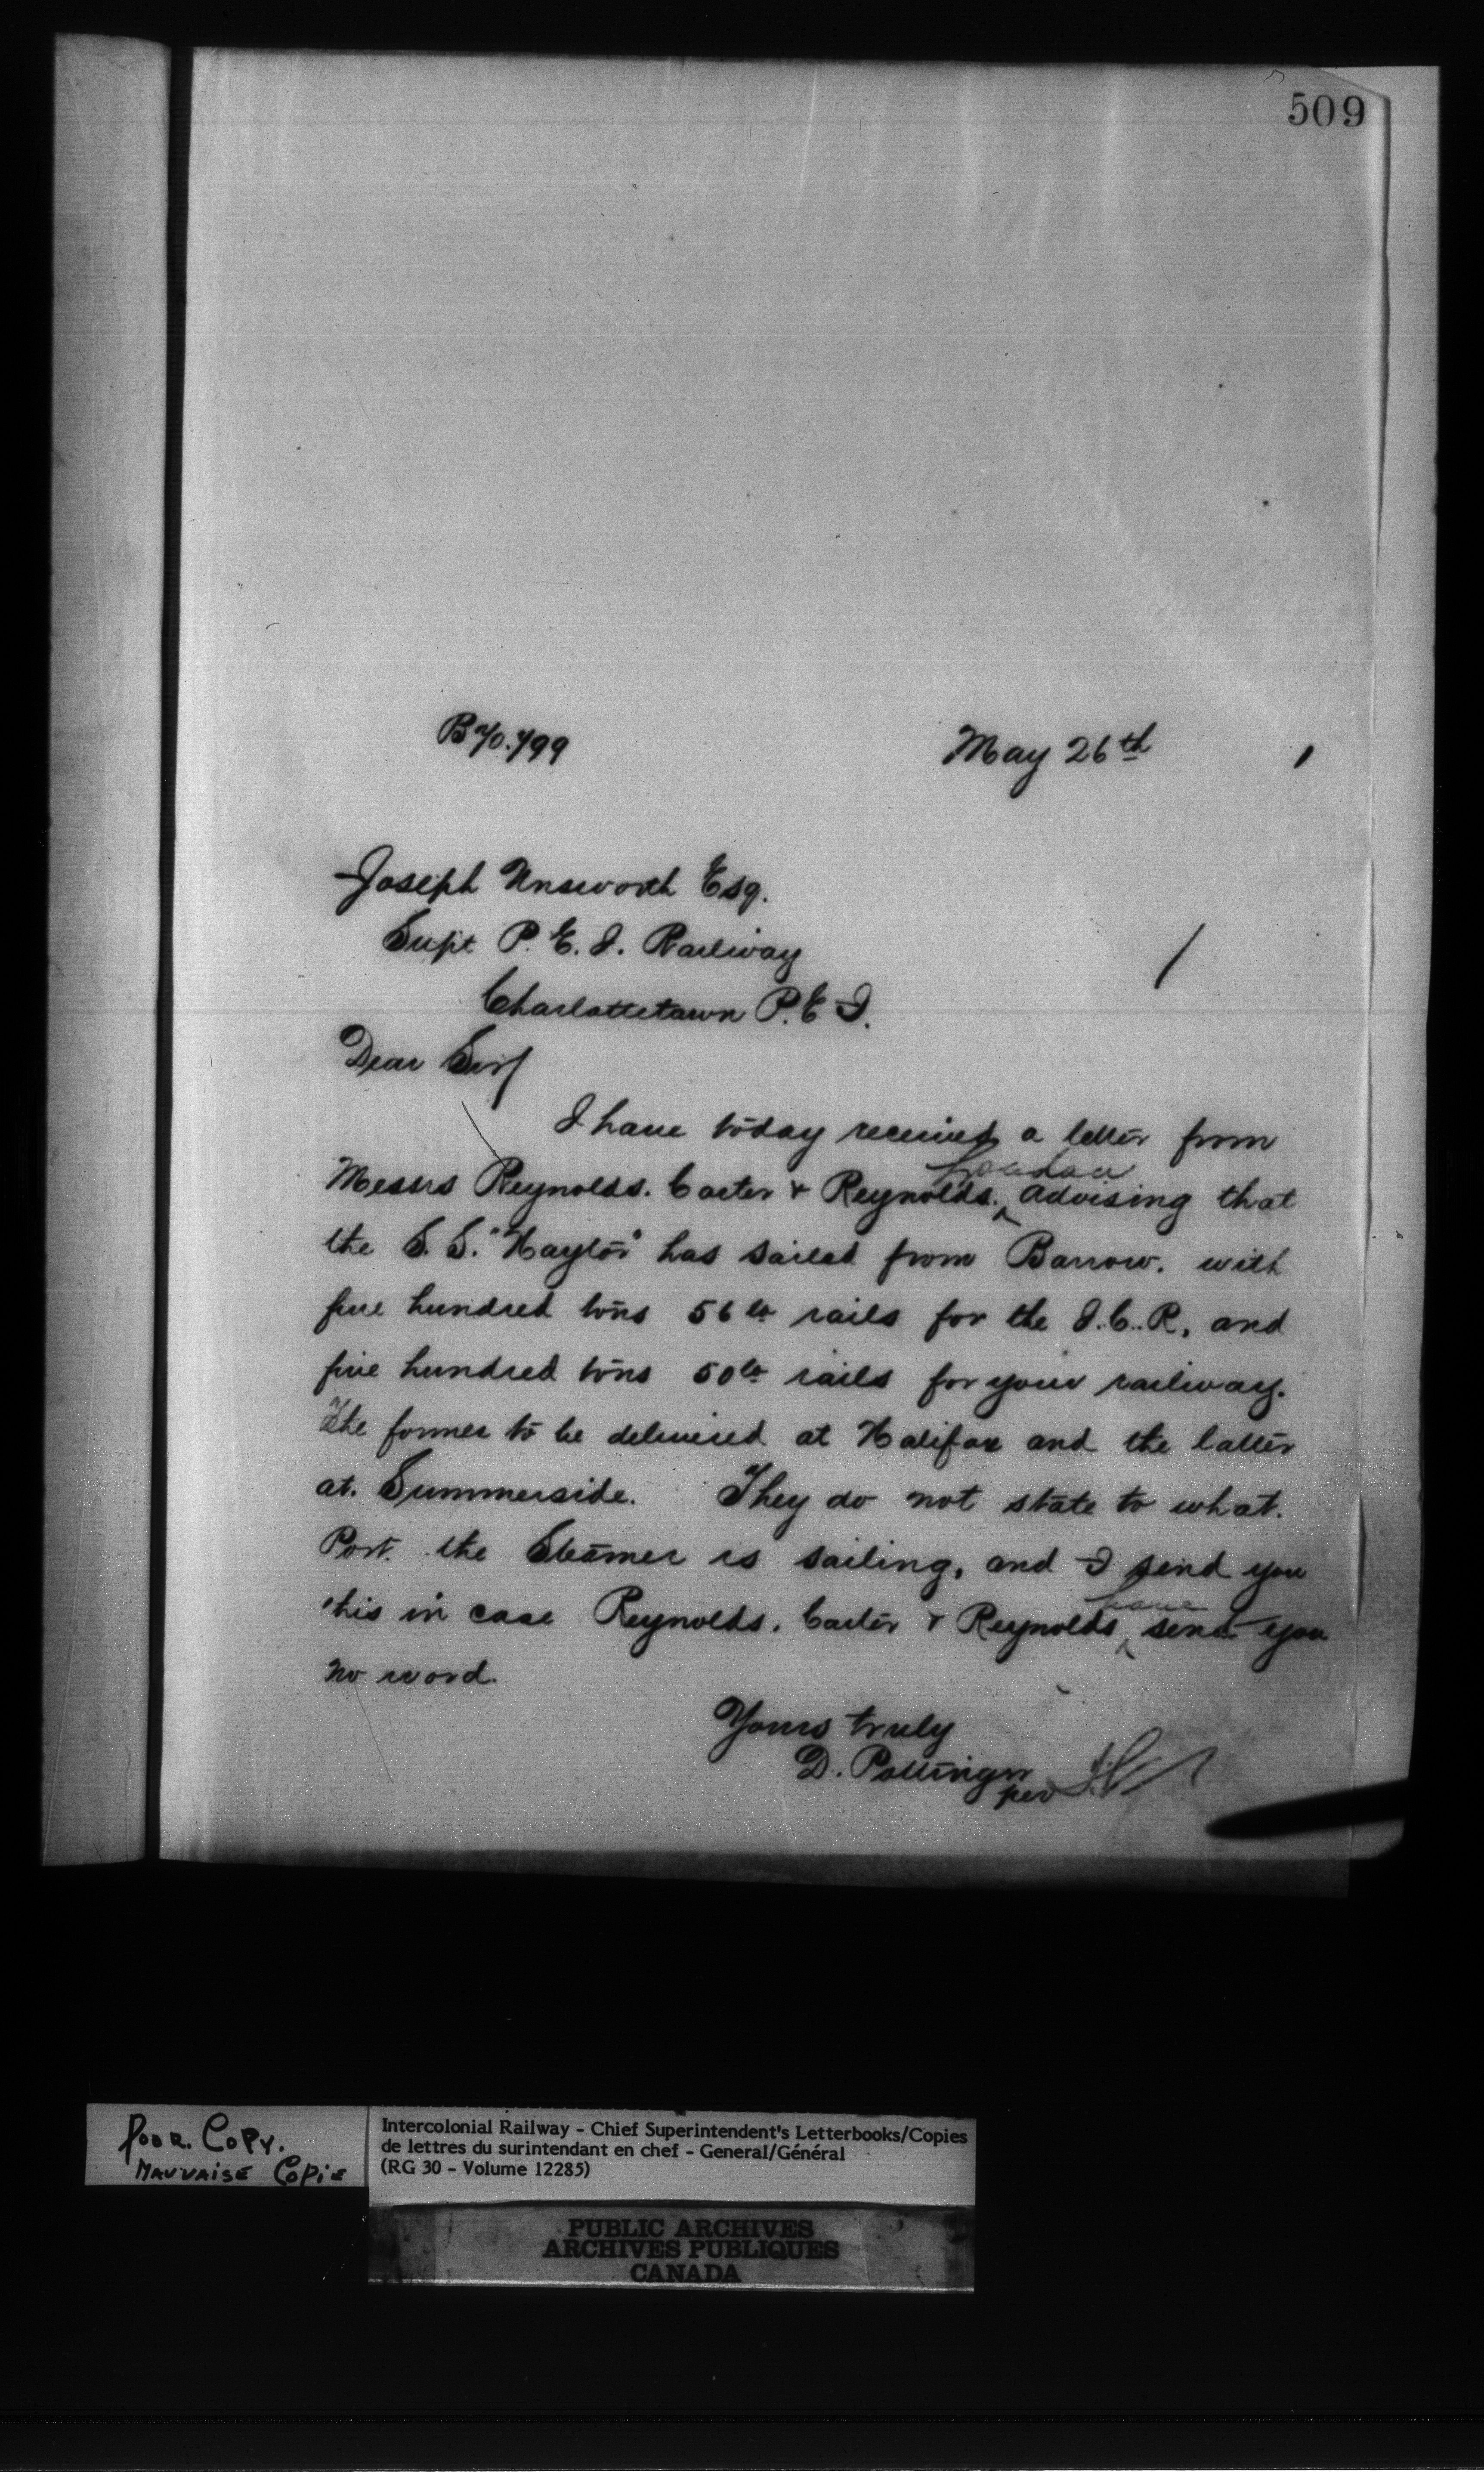 509
May 26th 1
Joseph Unsworth Esq.
Supt P. E. I. Railway
Charlottetown P. E I.
Dear Sir/
I have today received a letter from
London
Messrs Reynolds. Carter & Reynolds. ^ advising that
the S. S. "Naylor" has sailed from Barrow. with
five hundred tons 56 lb rails for the I. C. R, and
five hundred tons 50 lb rails for your railway.
The former to be delivered at Halifax and the latter
at. Summerside. They do not state to what.
Port. the Steamer is sailing, and I send you
have
this in case Reynolds. Carter & Reynolds ^ sent you
no word.
Yours truly
D. Pottinger
per
Poor. Copy.
Mauvaise Copie
Intercolonial Railway - Chief Superintendent's Letterbooks/Copies
de lettres du surintendant en chef - General/Général
(RG 30 - Volume 12285)
PUBLIC ARCHIVES
ARCHIVES PUBLIQUES
CANADA